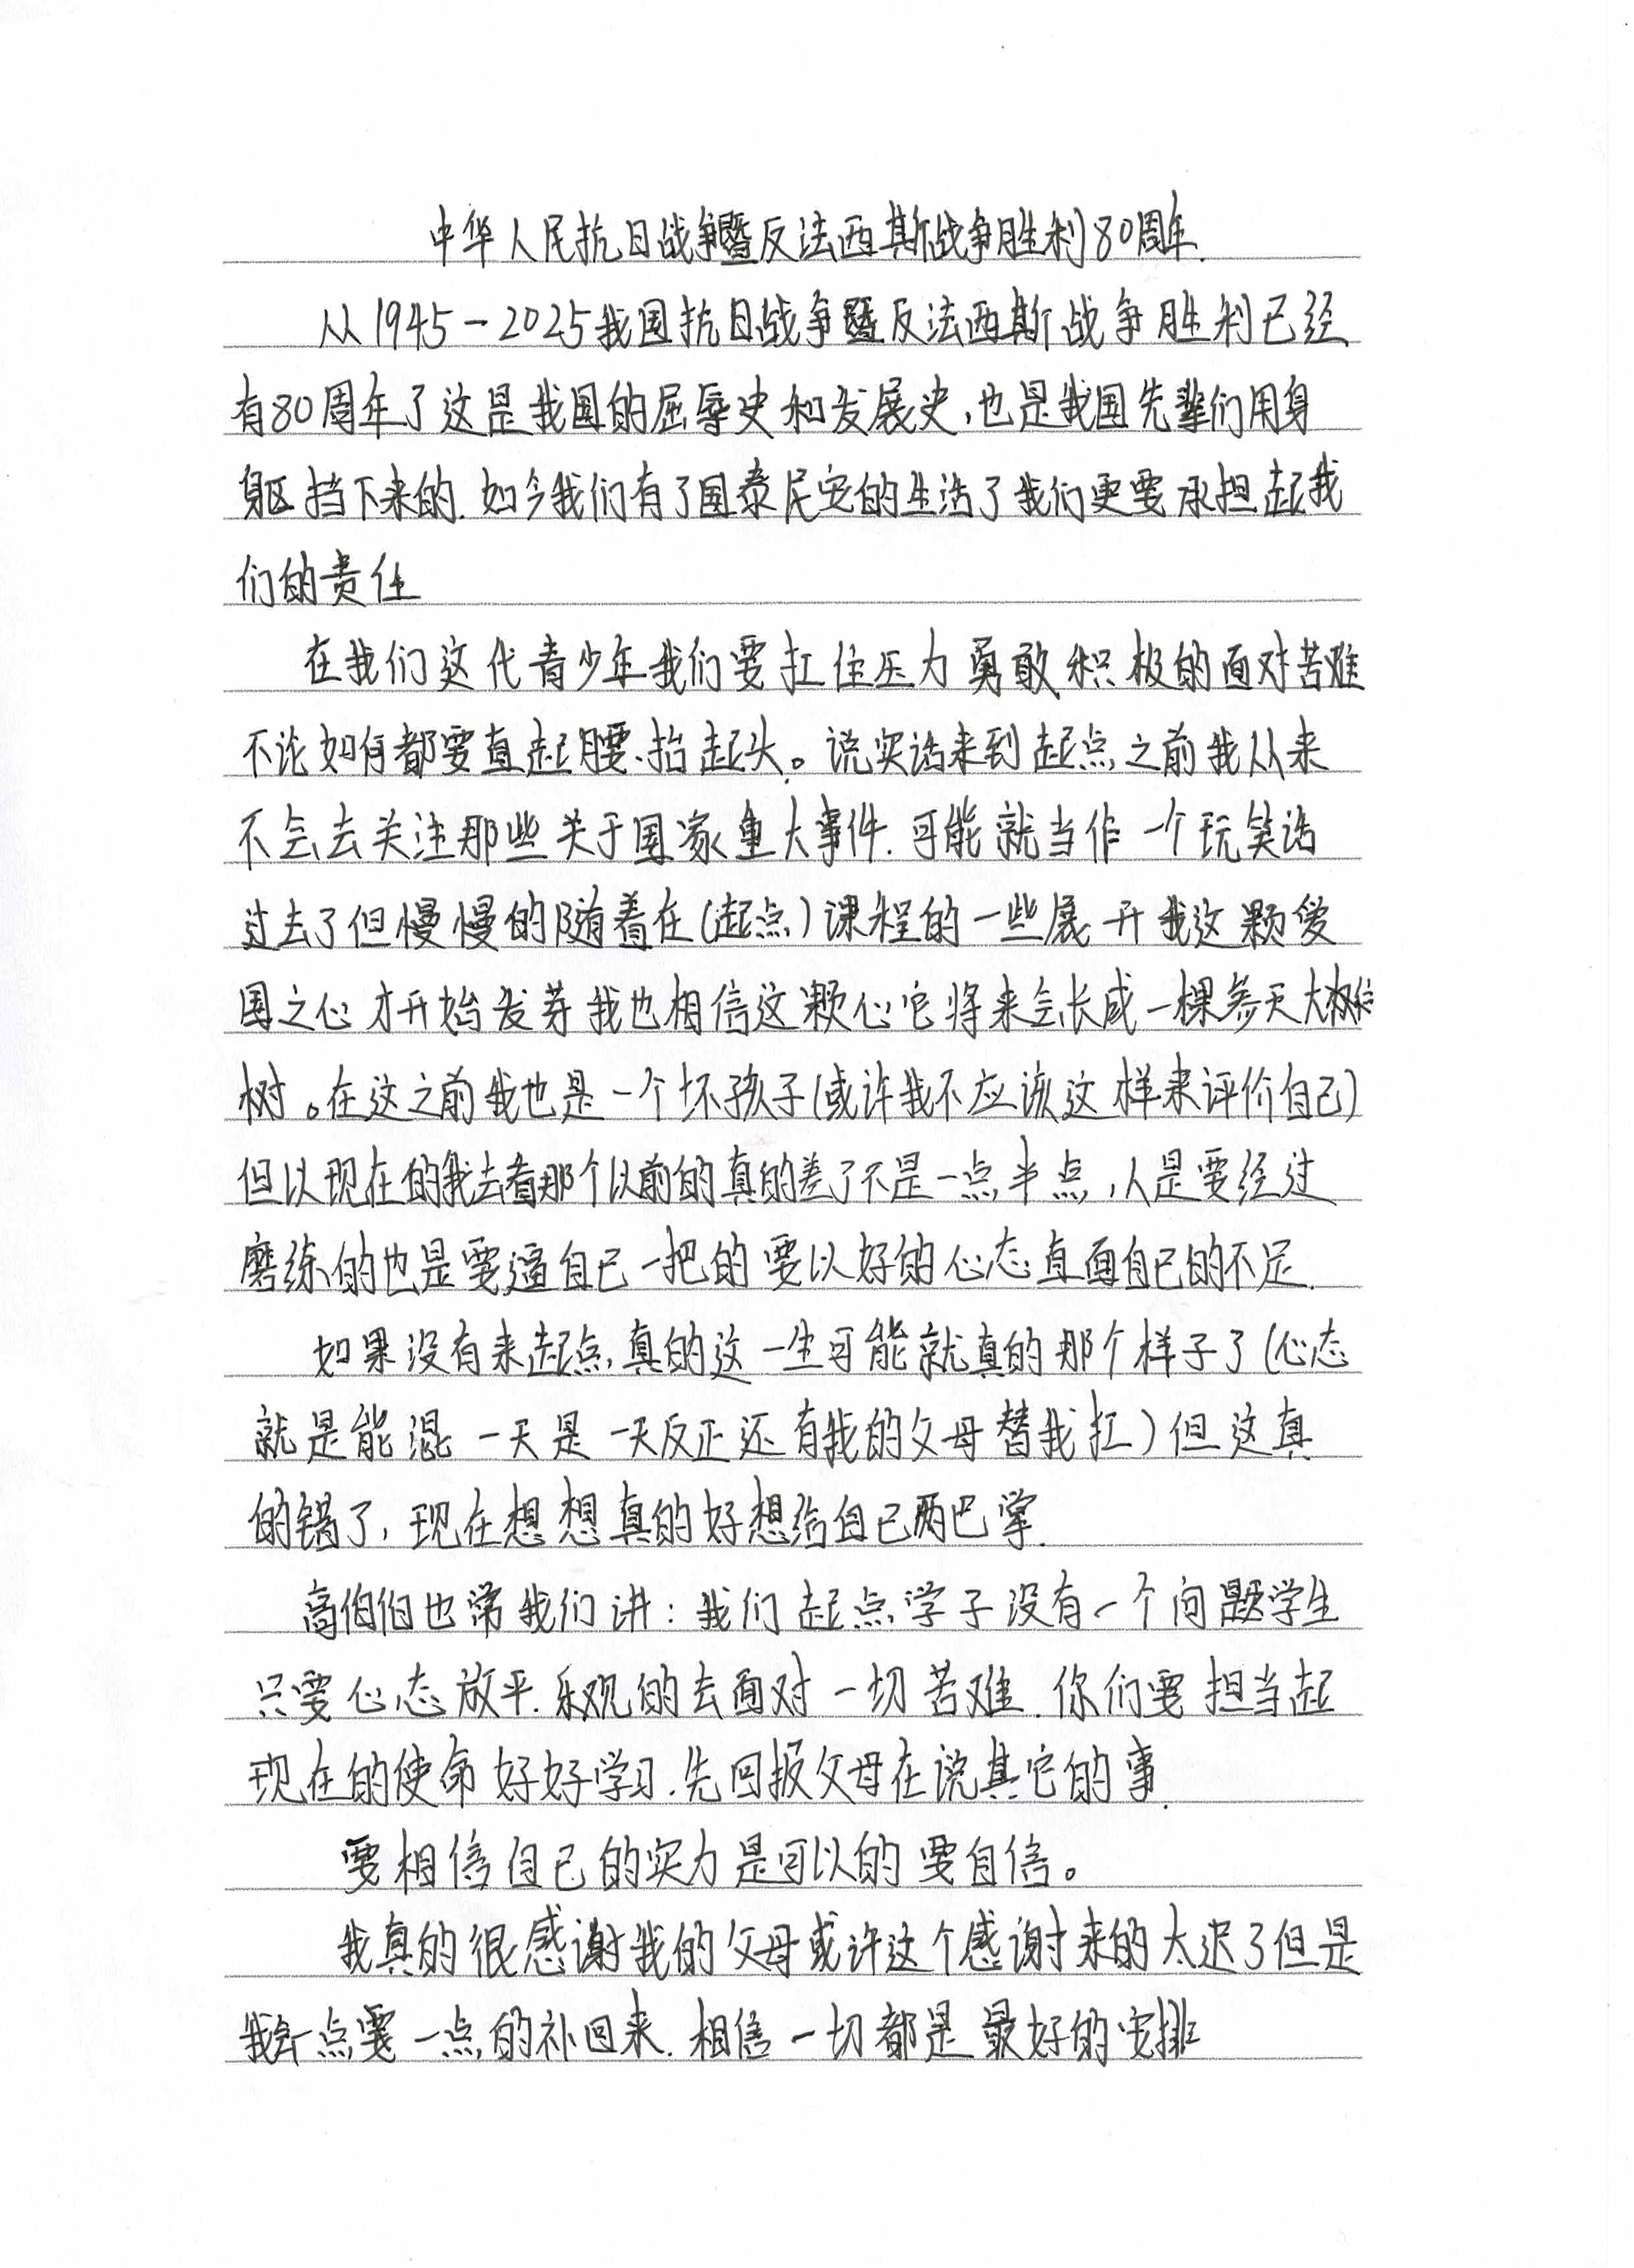 中华人民抗日战争暨反法西斯战争胜利80周年.
从1945-2025我国抗日战争暨反法西斯战争胜利已经
有80周年了这是我国的屈辱史和发展史,也是我国先辈们用身
躯挡下来的.如今我们有了国泰民安的生活了我们更要承担起我
们的责任
在我们这代青少年我们要扛住压力勇敢积极的面对苦难
不论如何都要直起腰、抬起头。说实话来到起点之前我从来
不会去关注那些关于国家重大事件.可能就当作一个玩笑话
过去了但慢慢的随着在(起点)课程的一些展开我这颗爱
国之心才开始发芽我也相信这颗心它将来会长成一棵参天大
树。在这之前我也是一个坏孩子(或许我不应该这样来评价自己)
但以现在的我去看那个以前的真的差了不是一点半点,人是要经过
磨练的也是要逼自己一把的要以好的心态直面自己的不足.
如果没有来起点真的这一生可能就真的那个样子了(心态
就是能混一天是一天反正还有我的父母替我扛)但这真
的错了,现在想想真的好想给自己两巴掌.
高伯伯也常我们讲:我们起点学子没有一个问题学生
只要心态放平.乐观的去面对一切苦难.你们要担当起
现在的使命好好学习.先回报父母在说其它的事.
要相信自己的实力是可以的要自信。
我真的很感谢我的父母或许这个感谢来的太迟了但是
我会一点要一点的补回来.相信一切都是最好的安排